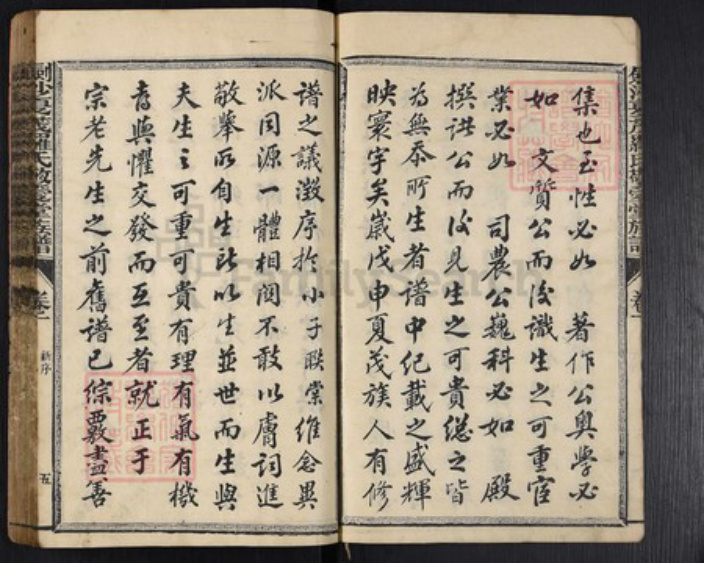 集也至性必如　著作公奧學必
如　文質公而後識生之可重宦
業必如　司農公巍科必如　殿
撰洪公而後見生之可貴總之皆
為無忝所生者譜中紀載之盛輝
映寰宇矣歲戊申夏茂族人有修
譜之議徵序於小子联棠維念異
派同源一體相關不敢以膚詞進
敬舉所自生所以生並世而生與
夫生之可重可貴有理有氣有機
喜與懼交發而互至者就正于
宗老先生之前舊譜已綜覈盡善
卷一
新序
五
FamilySearch